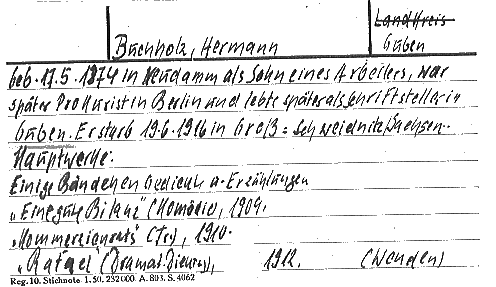 Landkreis
Buchholz, Hermann Guben
Geb. 17.5.1874 in Neudamm als Sohn eines Arbeiters, war
später Prokurist in Berlin und lebte später als Schriftsteller in
Guben. Er starb 19.6.1916 in Groß=Schweidnitz Sachsen.
Hauptwerke:
Einige Bändchen Gedichte u. Erzählungen
„Eine gute Bilanz" (Komödie), 1909.
„Kommerzienrats" (Tr), 1910.
„Rafael" (Dramat. ), 1912. (Wenden)
Reg. 10. Stichnote. 1. 50. 232000. A. 803. S. 4062